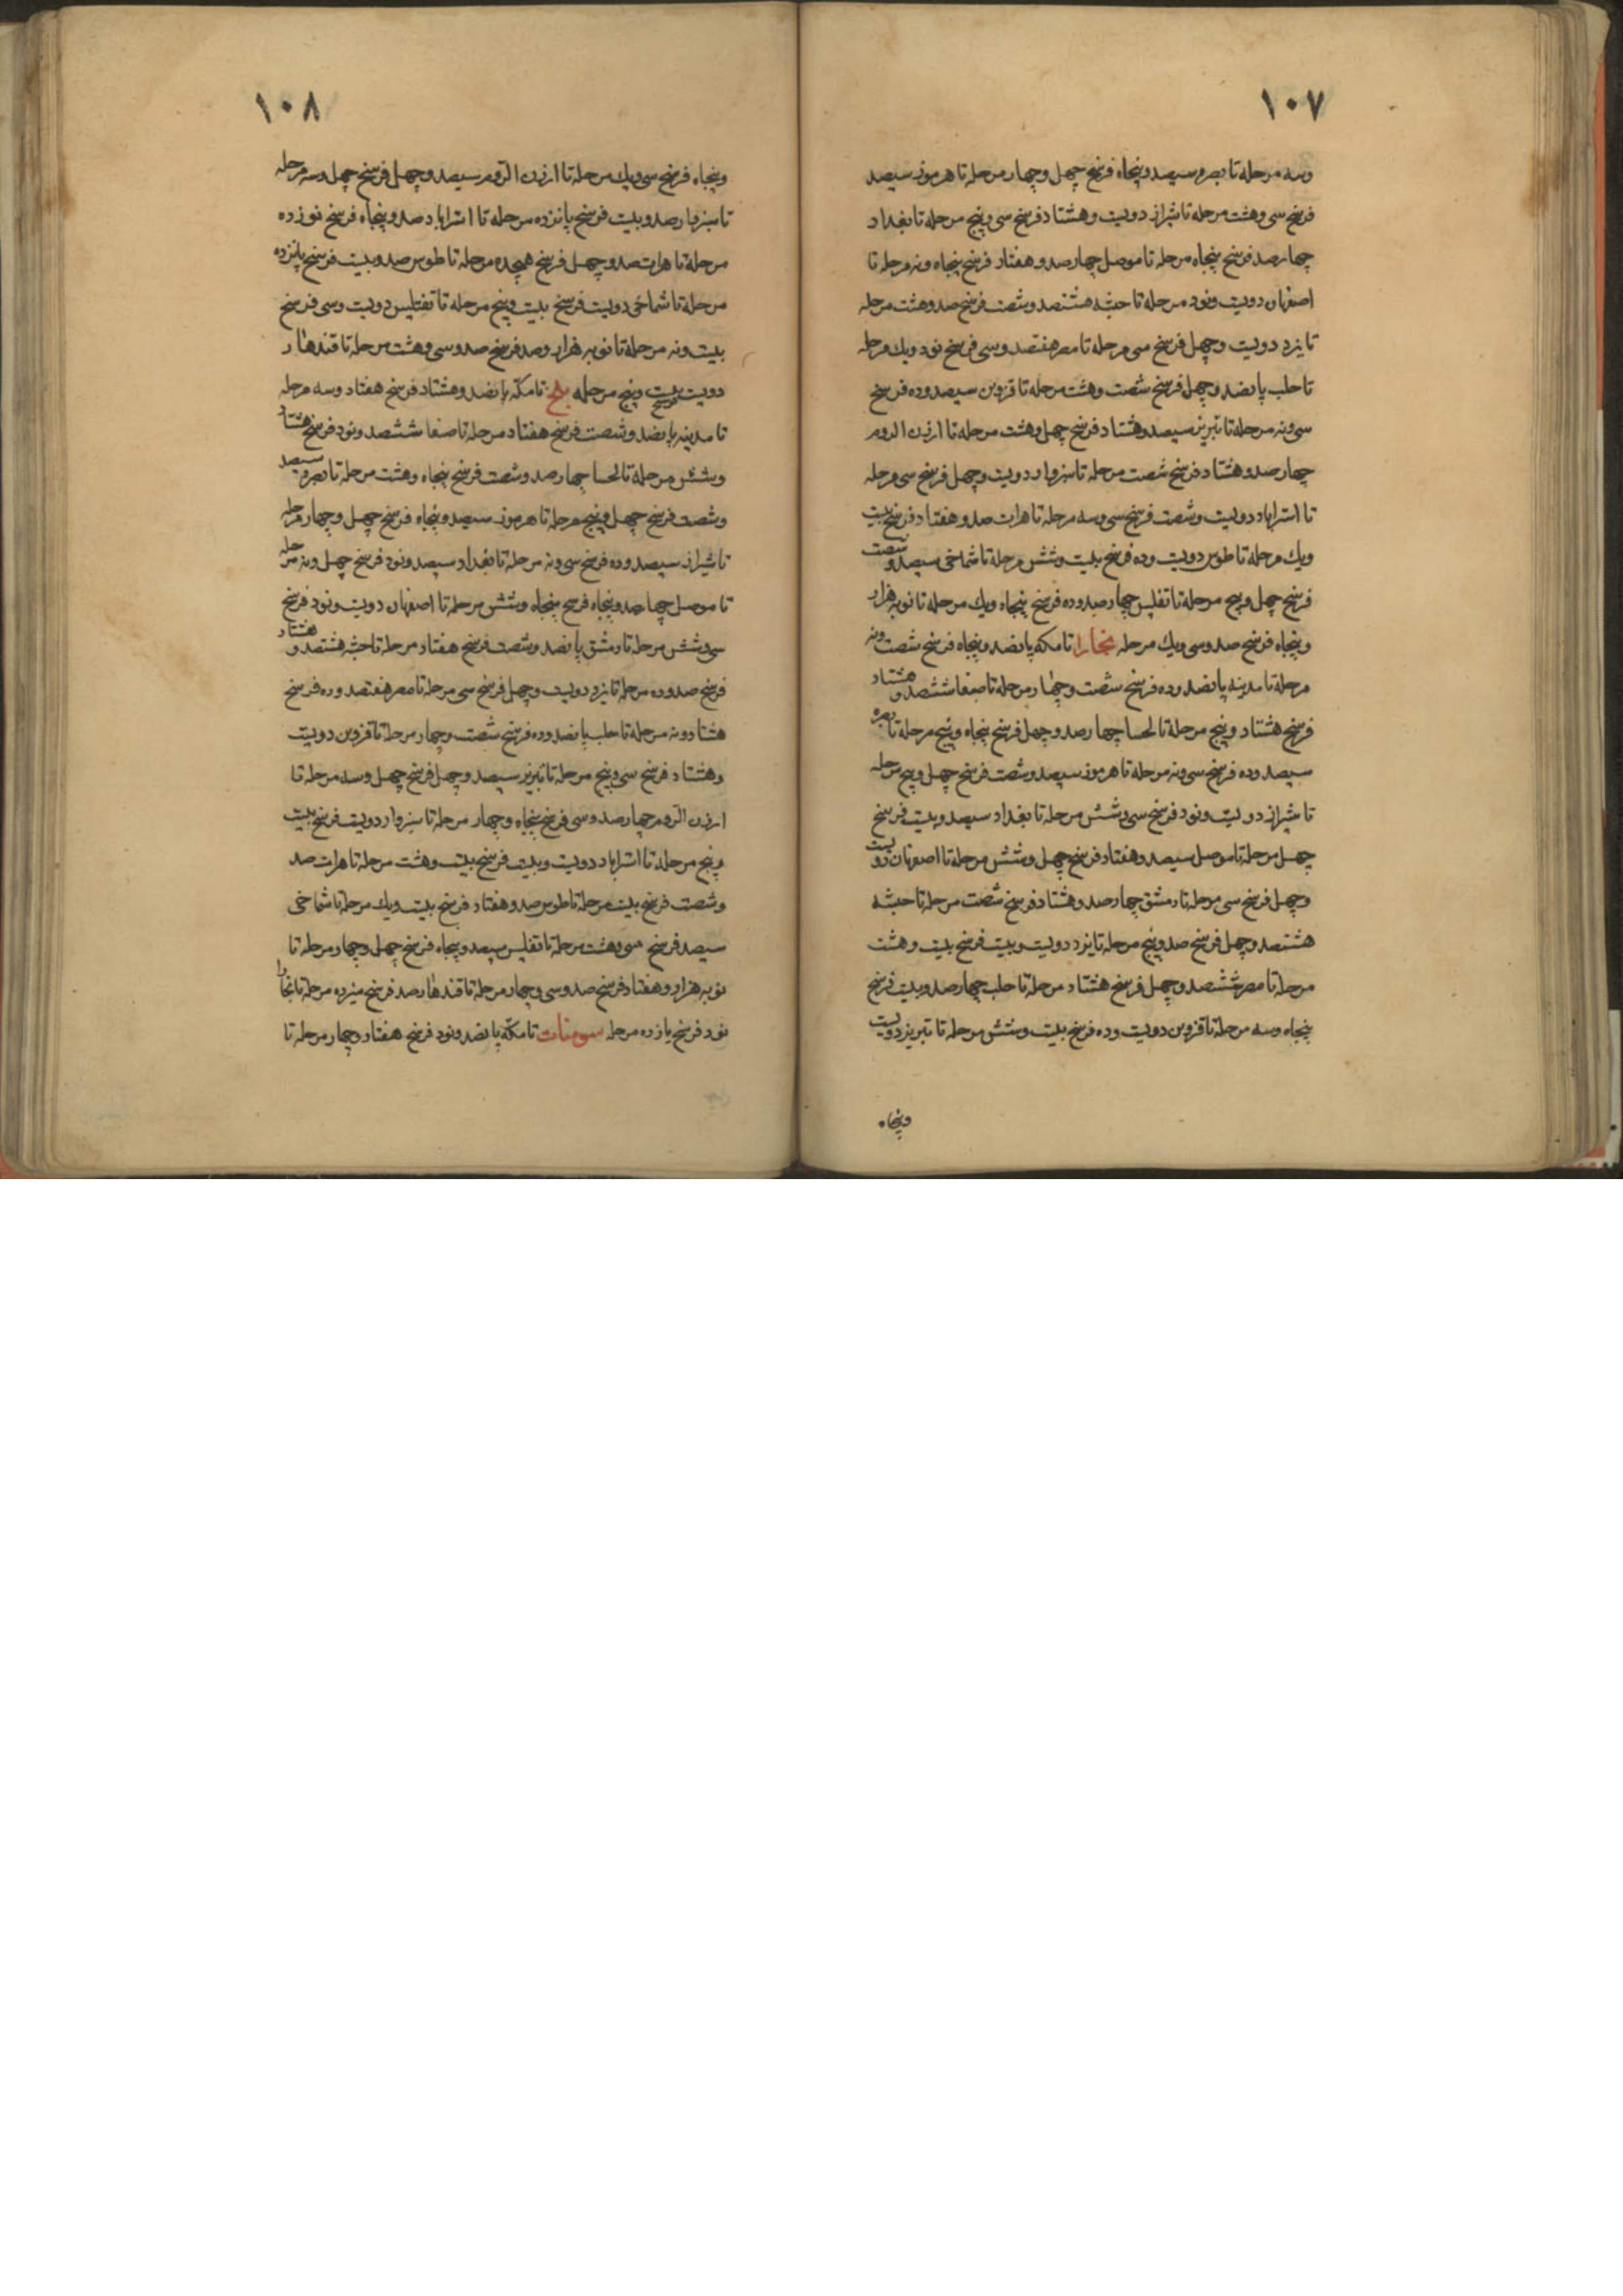 ١٠٧
وسه مرحله تا بصره سیصد و پنجاه فرسخ چهل و چهار مرحله تا هرموز سیصد
فرسخ سی و هشت مرحله تا شیراز دویت و هشتاد فرسخ سی و پنج مرحله تا بغداد
چهار صد فرسخ پنجاه مرحله تا موصل چهار صد و هفتاد فرسخ پنجاه و نه مرحله تا
اصفهان دویت و نود مرحله تا حبشه هشتصد و شصت فرسخ صد و هشت مرحله
تا یزد دویت و چهل فرسخ سی مرحله تا مصر هفتصد و سی فرسخ نود و یك مرحله
تا حلب پانصد و چهل فرسخ شصت و هشت مرحله تا قزوین سیصد و ده فرسخ
سی و نه مرحله تا تبریز سیصد و هشتاد فرسخ چهل و هشت مرحله تا ارزن الروم
چهار صد و هشتاد فرسخ شصت مرحله تا سبزوار دویت و چهل فرسخ سی مرحله
تا استراباد دویت و شصت فرسخ سی و سه مرحله تا هرات صد و هفتاد فرسخ بیت
ویك مرحله تا طوس دویت و ده فرسخ بیت و شش مرحله تا شماخی سیصد و شصت
فرسخ چهل و پنج مرحله تا تفلیس چهار صد و ده فرسخ پنجاه و یك مرحله تا نوبه هزار
و پنجاه فرسخ صد و سی و یك مرحله بخارا تا مکه پانصد و پنجاه فرسخ شصت و نه
مرحله تا مدینه پانصد و ده فرسخ شصت و چهار مرحله تا صنعا ششصد و هشتاد
فرسخ هشتاد و پنج مرحله تا لحسا چهار صد و چهل فرسخ پنجاه و پنج مرحله تا بصره
سیصد و ده فرسخ سی و نه مرحله تا هرموز سیصد و شصت فرسخ چهل و پنج مرحله
تا شیراز دویت و نود فرسخ سی و شش مرحله تا بغداد سیصد و بیت فرسخ
چهل مرحله تا موصل سیصد و هفتاد فرسخ چهل و شش مرحله تا اصفهان دویت
و چهل فرسخ سی مرحله تا دمشق چهار صد و هشتاد فرسخ شصت مرحله تا حبشه
هشتصد و چهل فرسخ صد و پنج مرحله تا یزد دویت و بیت فرسخ بیت و هشت
مرحله تا مصر ششصد و چهل فرسخ هشتاد مرحله تا حلب چهار صد و بیت فرسخ
پنجاه و سه مرحله تا قزوین دویت و ده فرسخ بیت و شش مرحله تا تبریز دویت
و پنجاه
١٠٨
و پنجاه فرسخ سی و یك مرحله تا ارزن الروم سیصد و چهل فرسخ چهل و سه مرحله
تا سبزوار صد و بیت فرسخ پانزده مرحله تا استراباد صد و پنجاه فرسخ نوزده
مرحله تا هرات صد و چهل فرسخ هیجده مرحله تا طوس صد و بیت فرسخ پانزده
مرحله تا شماخی دویت فرسخ بیت و پنج مرحله تا تفلیس دویت و سی فرسخ
بیت و نه مرحله تا نوبه هزار و صد فرسخ صد و سی و هشت مرحله تا قندهار
دویت فرسخ بیت و پنج مرحله بلخ تا مکّه پانصد و هشتاد فرسخ هفتاد و سه مرحله
تا مدینه پانصد و شصت فرسخ هفتاد مرحله تا صنعا ششصد و نود فرسخ هشتاد
و شش مرحله تا لحسا چهار صد و شصت فرسخ پنجاه و هشت مرحله تا بصره سیصد
و شصت فرسخ چهل و پنج مرحله تا هرموز سیصد و پنجاه فرسخ چهل و چهار مرحله
تا شیراز سیصد و ده فرسخ سی و نه مرحله تا بغداد سیصد و نود فرسخ چهل و نه مرحله
تا موصل چهار صد و پنجاه فرسخ پنجاه و شش مرحله تا اصفهان دویت و نود فرسخ
سی و شش مرحله تا دمشق پانصد و شصت فرسخ هفتاد مرحله تا حبشه هشتصد و هشتاد
فرسخ صد و ده مرحله تا یزد دویت و چهل فرسخ سی مرحله تا مصر هفتصد و ده فرسخ
هشتاد و نه مرحله تا حلب پانصد و ده فرسخ شصت و چهار مرحله تا قزوین دویت
و هشتاد فرسخ سی و پنج مرحله تا تبریز سیصد و چهل فرسخ چهل و سه مرحله تا
ارزن الروم چهار صد و سی فرسخ پنجاه و چهار مرحله تا سبزوار دویت فرسخ بیت
و پنج مرحله تا استراباد دویت و بیت فرسخ بیت و هشت مرحله تا هرات صد
و شصت فرسخ بیت مرحله تا طوس صد و هفتاد فرسخ بیت و یك مرحله تا شماخی
سیصد فرسخ سی و هشت مرحله تا تفلیس سیصد و پنجاه فرسخ چهل و چهار مرحله تا
نوبه هزار و هفتاد فرسخ صد و سی و چهار مرحله تا قندهار صد فرسخ سیزده مرحله تا بخارا
نود فرسخ یازده مرحله سومنات تا مکّه پانصد و نود فرسخ هفتاد و چهار مرحله تا